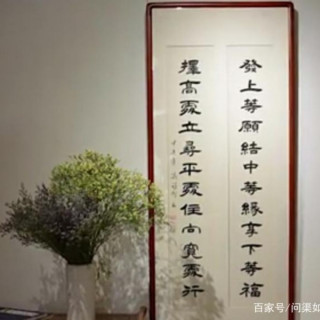 發上等願結中等緣享下等福
擇高處立尋平處住向寬處行
百家号/问渠如